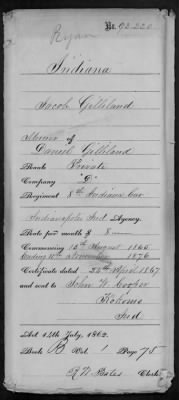 No. 92.220
Ryan
Indiana
Jacob Gilliland
Minor of
Daniel Gilliland
Rank Private
Company "G"
Regiment 8th Indiana Cav
Indianapolis Ind Agency.
Rate per month $ 8
Commencing 15th August 1865
Ending 10th November 1876
Certificate dated 24th April 1867
and sent to John W. Cooper
Kokomo
Ind
Act 14th July, 1862.
Book B Vol. 1 Page 75
R N Bales Clerk